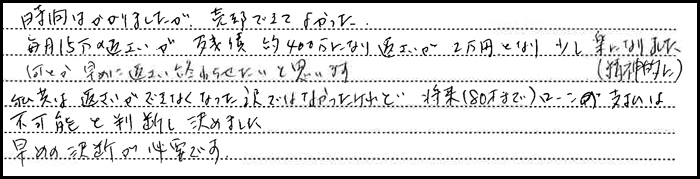 時間はかかりましたが、売却できてよかった。
毎月15万の返エいが 残債 約400万になり返エいが 2万円となり 少し楽になりました
何とか早めに返エい終わらせたいと思います (精神的に)
私共は 返さいができなくなった訳ではなかったけれど 将来(80才まで)ローンの支払は
不可能と判断し決めました
早めの決断が必要です。